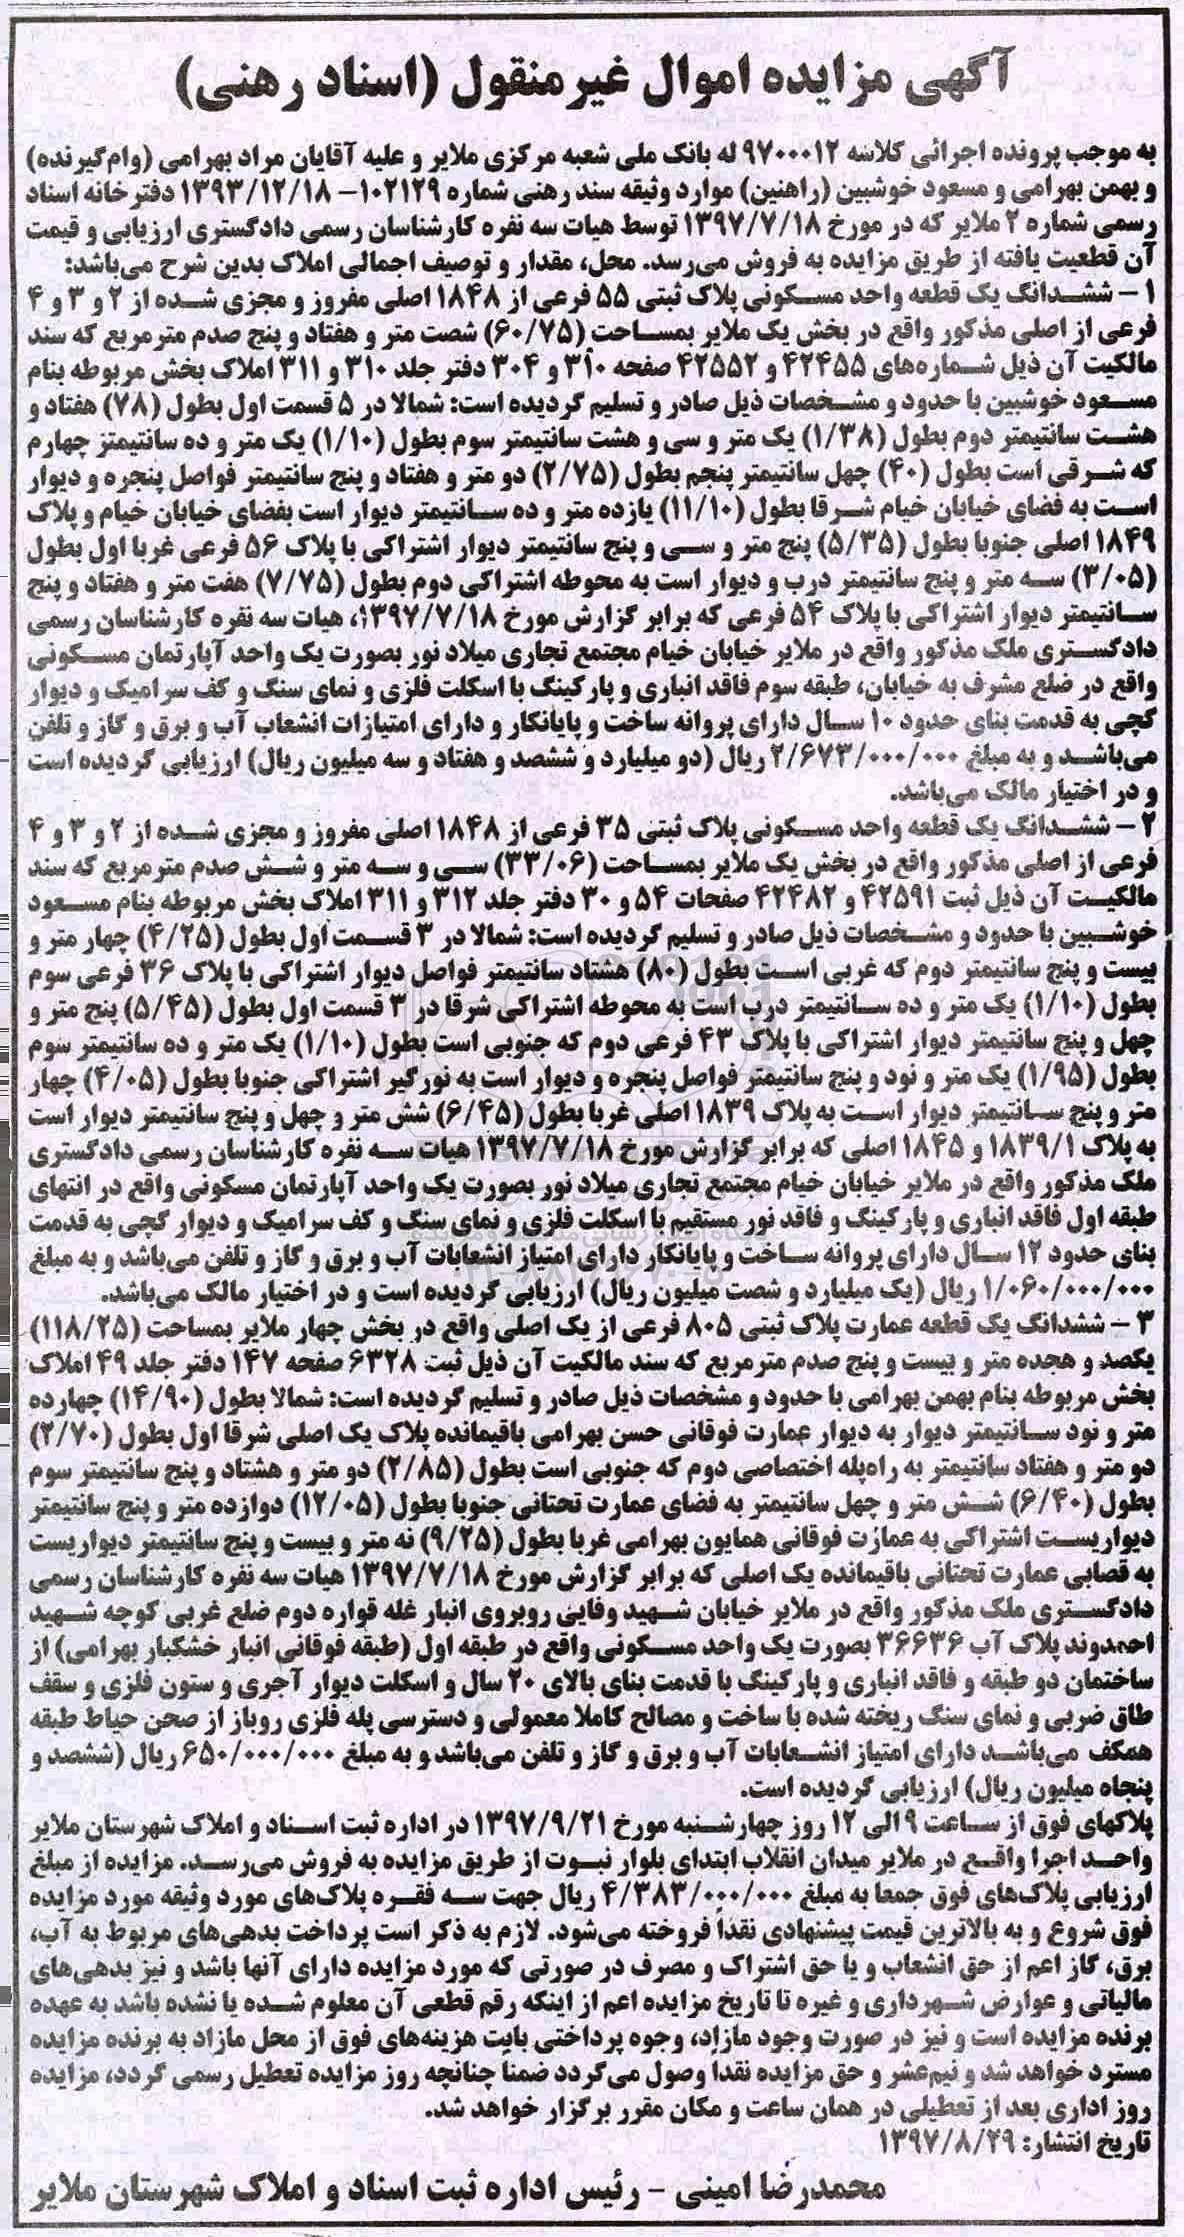 آگهی مزایده اموال غیرمنقول (اسناد رهنی)
به موجب پرونده اجرائی کلاسه ۹۷۰۰۰۱۲ له بانک ملی شعبه مرکزی ملایر و علیه آقایان مراد بهرامی (وام‌گیرنده)
و بهمن بهرامی و مسعود خوشبین (راهنین) موارد وثیقه سند رهنی شماره ۱۰۲۱۲۹- ۱۳۹۳/۱۲/۱۸ دفترخانه اسناد
رسمی شماره ۲ ملایر که در مورخ ۱۳۹۷/۷/۱۸ توسط هیات سه نفره کارشناسان رسمی دادگستری ارزیابی و قیمت
آن قطعیت یافته از طریق مزایده به فروش می‌رسد. محل، مقدار و توصیف اجمالی املاک بدین شرح می‌باشد:
۱- ششدانگ یک قطعه واحد مسکونی پلاک ثبتی ۵۵ فرعی از ۱۸۴۸ اصلی مفروز و مجزی شده از ۲ و ۳ و ۴
فرعی از اصلی مذکور واقع در بخش یک ملایر بمساحت (۶۰/۷۵) شصت متر و هفتاد و پنج صدم مترمربع که سند
مالکیت آن ذیل شماره‌های ۴۲۴۵۵ و ۴۲۵۵۲ صفحه ۳۱۰ و ۳۰۴ دفتر جلد ۳۱۰ و ۳۱۱ املاک بخش مربوطه بنام
مسعود خوشبین با حدود و مشخصات ذیل صادر و تسلیم گردیده است: شمالا در ۵ قسمت اول بطول (۷۸) هفتاد و
هشت سانتیمتر دوم بطول (۱/۳۸) یک متر و سی و هشت سانتیمتر سوم بطول (۱/۱۰) یک متر و ده سانتیمتر چهارم
که شرقی است بطول (۴۰) چهل سانتیمتر پنجم بطول (۲/۷۵) دو متر و هفتاد و پنج سانتیمتر فواصل پنجره و دیوار
است به فضای خیابان خیام شرقا بطول (۱۱/۱۰) یازده متر و ده سانتیمتر دیوار است بفضای خیابان خیام و پلاک
۱۸۴۹ اصلی جنوبا بطول (۵/۳۵) پنج متر و سی و پنج سانتیمتر دیوار اشتراکی با پلاک ۵۶ فرعی غربا اول بطول
(۳/۰۵) سه متر و پنج سانتیمتر درب و دیوار است به محوطه اشتراکی دوم بطول (۷/۷۵) هفت متر و هفتاد و پنج
سانتیمتر دیوار اشتراکی با پلاک ۵۴ فرعی که برابر گزارش مورخ ۱۳۹۷/۷/۱۸، هیات سه نفره کارشناسان رسمی
دادگستری ملک مذکور واقع در ملایر خیابان خیام مجتمع تجاری میلاد نور بصورت یک واحد آپارتمان مسکونی
واقع در ضلع مشرف به خیابان، طبقه سوم فاقد انباری و پارکینگ با اسکلت فلزی و نمای سنگ و کف سرامیک و دیوار
گچی به قدمت بنای حدود ۱۰ سال دارای پروانه ساخت و پایانکار و دارای امتیازات انشعاب آب و برق و گاز و تلفن
می‌باشد و به مبلغ ۲/۶۷۳/۰۰۰/۰۰۰ ریال (دو میلیارد و ششصد و هفتاد و سه میلیون ریال) ارزیابی گردیده است
و در اختیار مالک می‌باشد.
۲- ششدانگ یک قطعه واحد مسکونی پلاک ثبتی ۳۵ فرعی از ۱۸۴۸ اصلی مفروز و مجزی شده از ۲ و ۳ و ۴
فرعی از اصلی مذکور واقع در بخش یک ملایر بمساحت (۳۳/۰۶) سی و سه متر و شش صدم مترمربع که سند
مالکیت آن ذیل ثبت ۴۲۵۹۱ و ۴۲۴۸۲ صفحات ۵۴ و ۳۰ دفتر جلد ۳۱۲ و ۳۱۱ املاک بخش مربوطه بنام مسعود
خوشبین با حدود و مشخصات ذیل صادر و تسلیم گردیده است: شمالا در ۳ قسمت اول بطول (۴/۲۵) چهار متر و
بیست و پنج سانتیمتر دوم که غربی است بطول (۸۰) هشتاد سانتیمتر فواصل دیوار اشتراکی با پلاک ۳۶ فرعی سوم
بطول (۱/۱۰) یک متر و ده سانتیمتر درب است به محوطه اشتراکی شرقا در ۳ قسمت اول بطول (۵/۴۵) پنج متر و
چهل و پنج سانتیمتر دیوار اشتراکی با پلاک ۴۳ فرعی دوم که جنوبی است بطول (۱/۱۰) یک متر و ده سانتیمتر سوم
بطول (۱/۹۵) یک متر و نود و پنج سانتیمتر فواصل پنجره و دیوار است به نورگیر اشتراکی جنوبا بطول (۴/۰۵) چهار
متر و پنج سانتیمتر دیوار است به پلاک ۱۸۳۹ اصلی غربا بطول (۶/۴۵) شش متر و چهل و پنج سانتیمتر دیوار است
به پلاک ۱۸۳۹/۱ و ۱۸۴۵ اصلی که برابر گزارش مورخ ۱۳۹۷/۷/۱۸ هیات سه نفره کارشناسان رسمی دادگستری
ملک مذکور واقع در ملایر خیابان خیام مجتمع تجاری میلاد نور بصورت یک واحد آپارتمان مسکونی واقع در انتهای
طبقه اول فاقد انباری و پارکینگ و فاقد نور مستقیم با اسکلت فلزی و نمای سنگ و کف سرامیک و دیوار گچی به قدمت
بنای حدود ۱۲ سال دارای پروانه ساخت و پایانکار دارای امتیاز انشعابات آب و برق و گاز و تلفن می‌باشد و به مبلغ
۱/۰۶۰/۰۰۰/۰۰۰ ریال (یک میلیارد و شصت میلیون ریال) ارزیابی گردیده است و در اختیار مالک می‌باشد.
۳- ششدانگ یک قطعه عمارت پلاک ثبتی ۸۰۵ فرعی از یک اصلی واقع در بخش چهار ملایر بمساحت (۱۱۸/۲۵)
یکصد و هجده متر و بیست و پنج صدم مترمربع که سند مالکیت آن ذیل ثبت ۶۳۲۸ صفحه ۱۴۷ دفتر جلد ۴۹ املاک
بخش مربوطه بنام بهمن بهرامی با حدود و مشخصات ذیل صادر و تسلیم گردیده است: شمالا بطول (۱۴/۹۰) چهارده
متر و نود سانتیمتر دیوار به دیوار عمارت فوقانی حسن بهرامی باقیمانده پلاک یک اصلی شرقا اول بطول (۲/۷۰)
دو متر و هفتاد سانتیمتر به راه‌پله اختصاصی دوم که جنوبی است بطول (۲/۸۵) دو متر و هشتاد و پنج سانتیمتر سوم
بطول (۶/۴۰) شش متر و چهل سانتیمتر به فضای عمارت تحتانی جنوبا بطول (۱۲/۰۵) دوازده متر و پنج سانتیمتر
دیواریست اشتراکی به عمارت فوقانی همایون بهرامی غربا بطول (۹/۲۵) نه متر و بیست و پنج سانتیمتر دیواریست
به قصابی عمارت تحتانی باقیمانده یک اصلی که برابر گزارش مورخ ۱۳۹۷/۷/۱۸ هیات سه نفره کارشناسان رسمی
دادگستری ملک مذکور واقع در ملایر خیابان شهید وفایی روبروی انبار غله قواره دوم ضلع غربی کوچه شهید
احمدوند پلاک آب ۳۶۶۳۶ بصورت یک واحد مسکونی واقع در طبقه اول (طبقه فوقانی انبار خشکبار بهرامی) از
ساختمان دو طبقه و فاقد انباری و پارکینگ با قدمت بنای بالای ۲۰ سال و اسکلت دیوار آجری و ستون فلزی و سقف
طاق ضربی و نمای سنگ ریخته شده با ساخت و مصالح کاملا معمولی و دسترسی پله فلزی روباز از صحن حیاط طبقه
همکف می‌باشد دارای امتیاز انشعابات آب و برق و گاز و تلفن می‌باشد و به مبلغ ۶۵۰/۰۰۰/۰۰۰ ریال (ششصد و
پنجاه میلیون ریال) ارزیابی گردیده است.
پلاکهای فوق از ساعت ۹ الی ۱۲ روز چهارشنبه مورخ ۱۳۹۷/۹/۲۱ در اداره ثبت اسناد و املاک شهرستان ملایر
واحد اجرا واقع در ملایر میدان انقلاب ابتدای بلوار نبوت از طریق مزایده به فروش می‌رسد. مزایده از مبلغ
ارزیابی پلاک‌های فوق جمعا به مبلغ ۴/۳۸۳/۰۰۰/۰۰۰ ریال جهت سه فقره پلاک‌های مورد وثیقه مورد مزایده
فوق شروع و به بالاترین قیمت پیشنهادی نقداً فروخته می‌شود. لازم به ذکر است پرداخت بدهی‌های مربوط به آب،
برق، گاز اعم از حق انشعاب و یا حق اشتراک و مصرف در صورتی که مورد مزایده دارای آنها باشد و نیز بدهی‌های
مالیاتی و عوارض شهرداری و غیره تا تاریخ مزایده اعم از اینکه رقم قطعی آن معلوم شده یا نشده باشد به عهده
برنده مزایده است و نیز در صورت وجود مازاد، وجوه پرداختی بابت هزینه‌های فوق از محل مازاد به برنده مزایده
مسترد خواهد شد و نیم‌عشر و حق مزایده نقداً وصول می‌گردد ضمناً چنانچه روز مزایده تعطیل رسمی گردد، مزایده
روز اداری بعد از تعطیلی در همان ساعت و مکان مقرر برگزار خواهد شد.
تاریخ انتشار: ۱۳۹۷/۸/۲۹
محمدرضا امینی - رئیس اداره ثبت اسناد و املاک شهرستان ملایر